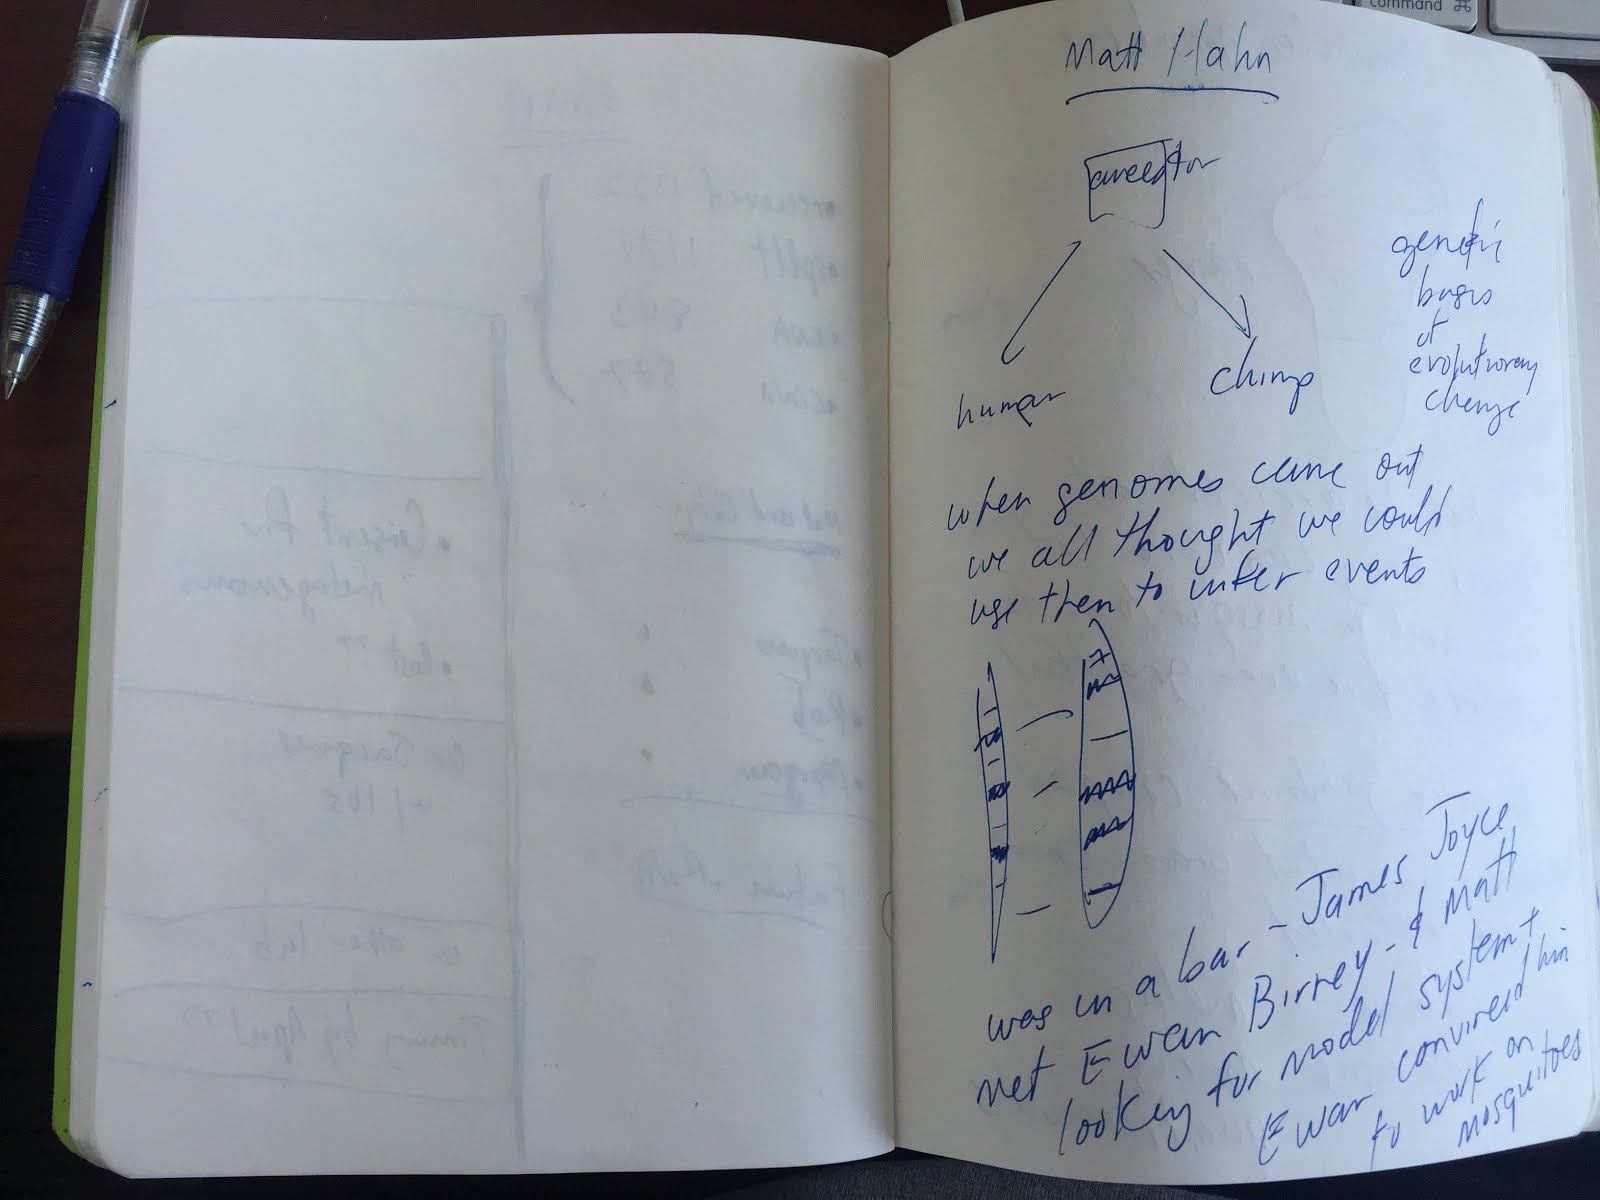 command ⌘
Matt Hahn
ancestor
human
chimp
genetic
basis
of
evolutionary
change
when genomes came out
we all thought we could
use them to infer events
was in a bar - James Joyce
met Ewan Birney - & Matt
looking for model system +
Ewan convinced him
to work on
mosquitoes